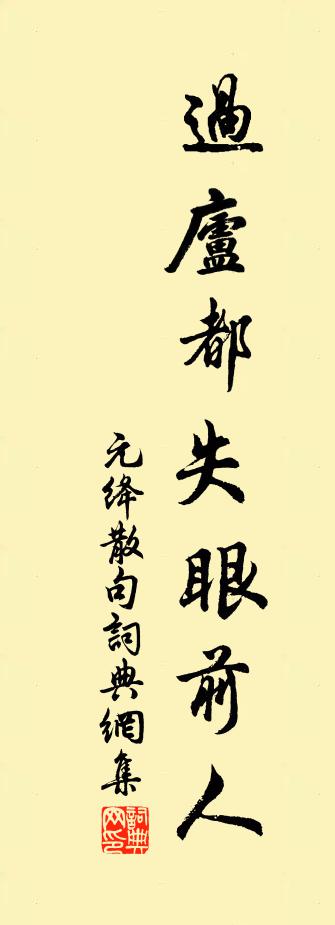 過廬都失眼前人
元绛散句詞典網集
詞典网印